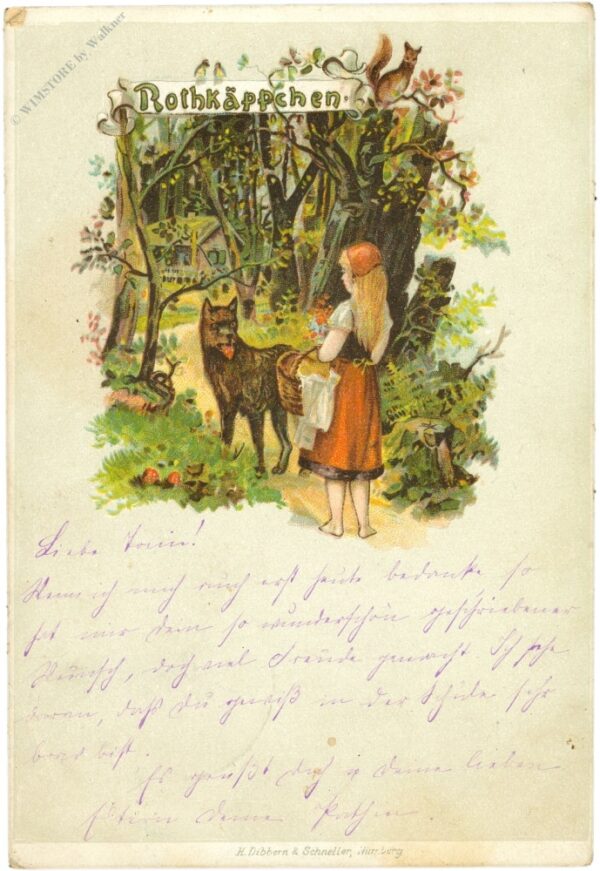 © WIMSTORE by Walkner
Rothkäppchen.
Liebe Tonie!
Wenn ich mich auch erst heute bedanke, so
hat mir dein so wunderschön geschriebener
Wunsch, doch viel Freude gemacht. Ich sehe
daran, daß du gewiß in der Schule sehr
brav bist.
Es grüßt dich u deine lieben
Eltern deine Pathin.
H. Dibbern & Schneller, Nürnberg